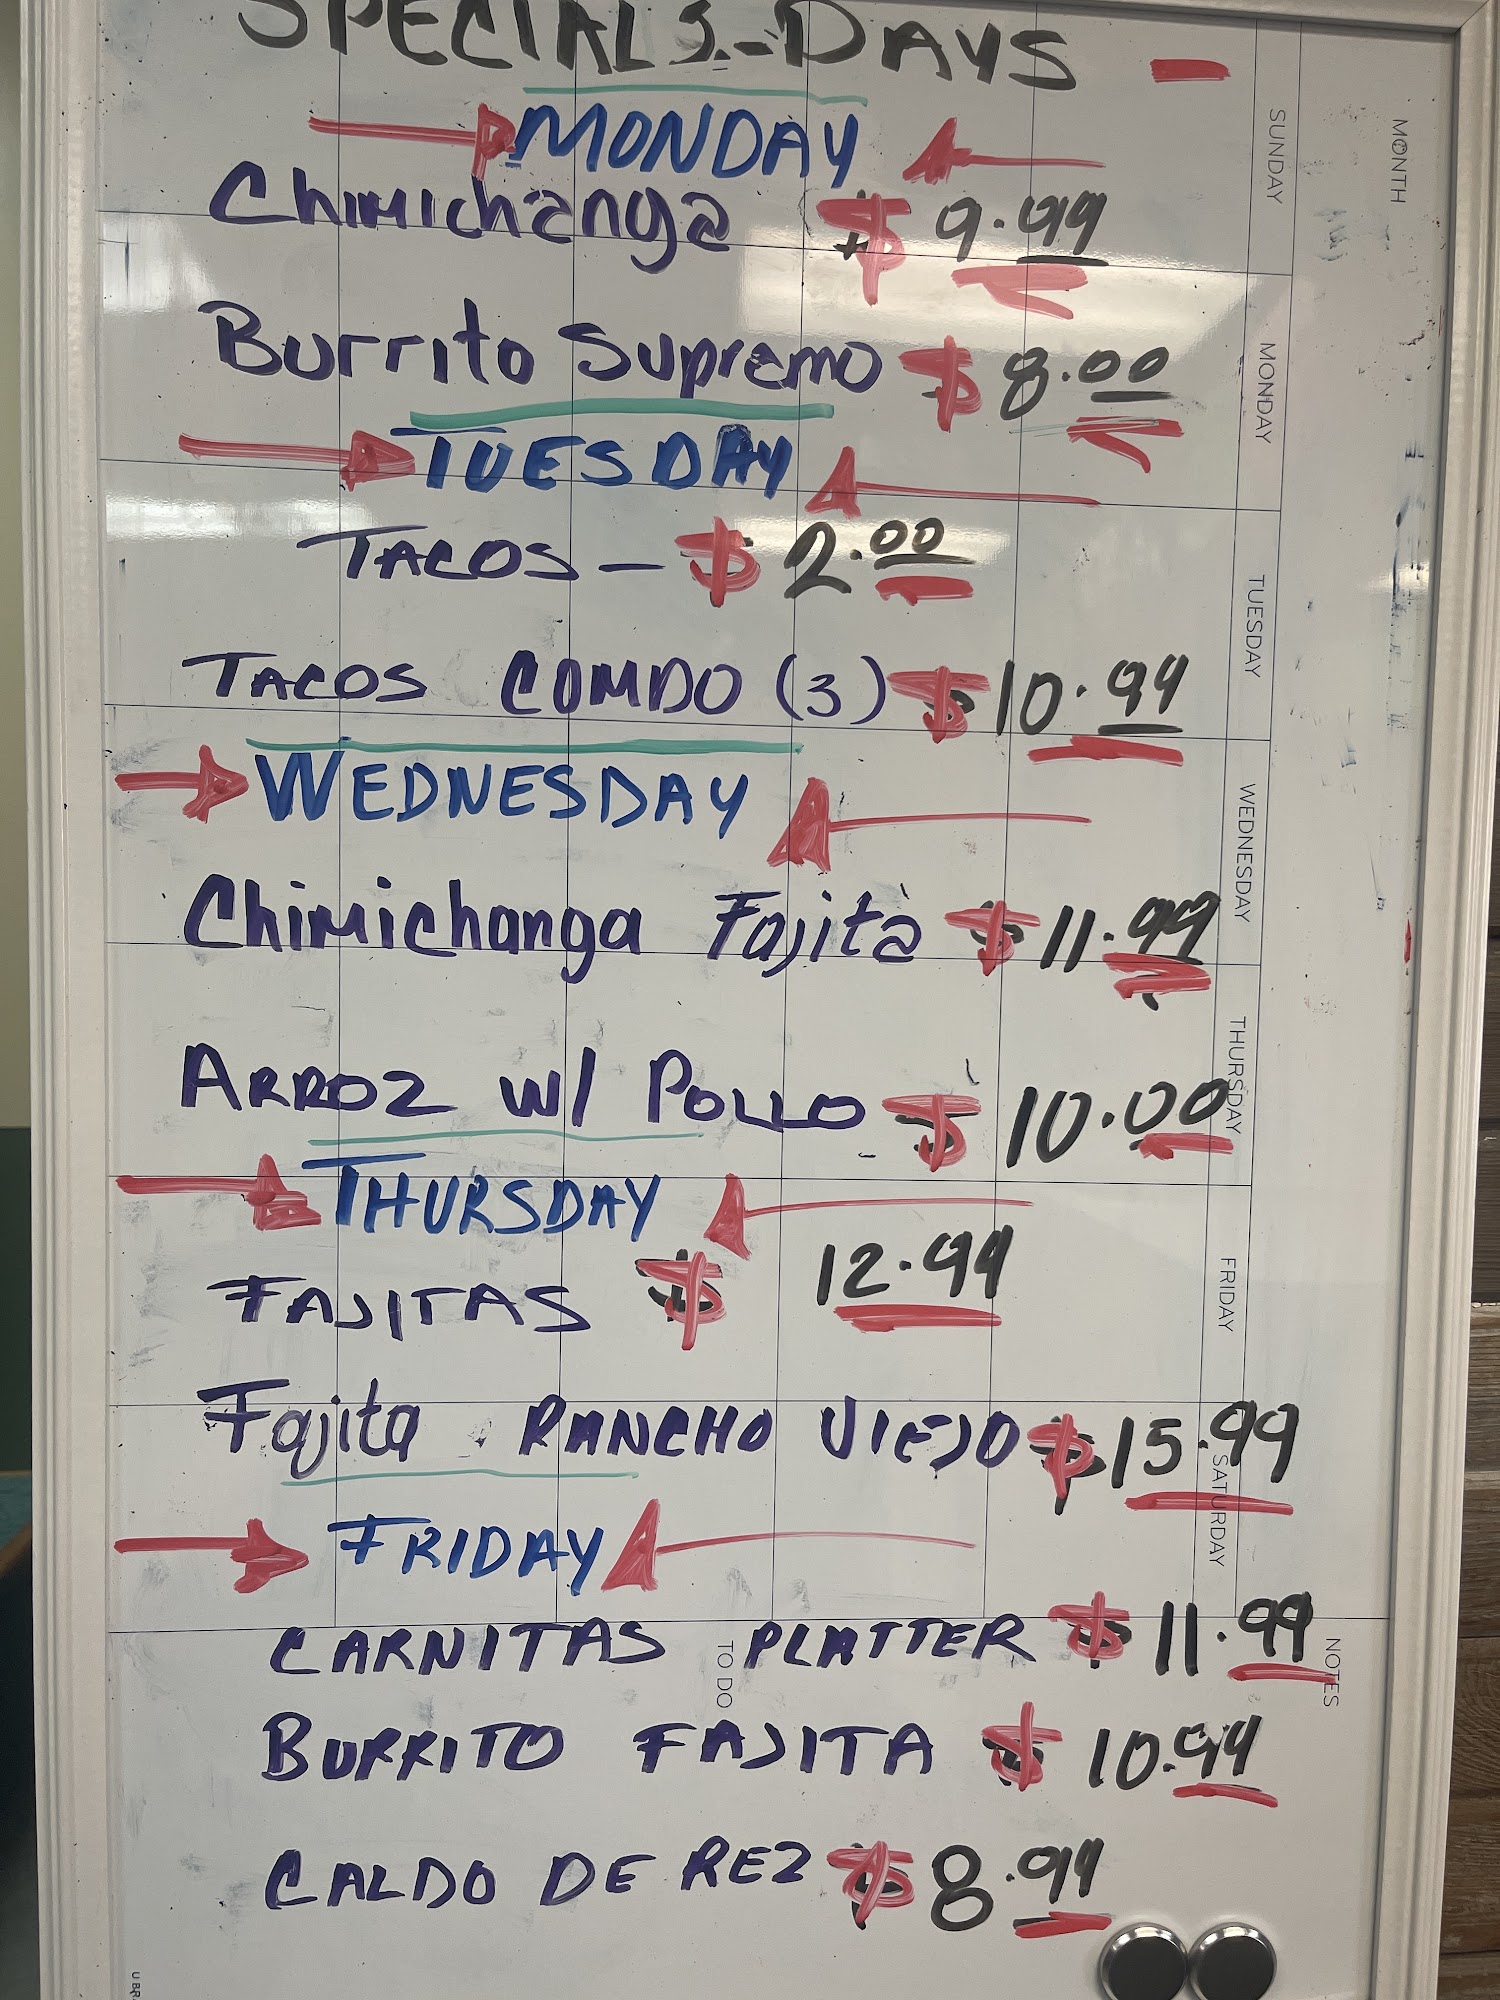 SPECIALS - DAYS -
MONDAY
Chimichanga $ 9.99
Burrito Supremo $ 8.00
TUESDAY
TACOS - $ 2.00
TACOS COMDO (3) $ 10.99
WEDNESDAY
Chimichanga Fajita $ 11.99
ARROZ W/ POLLO $ 10.00
THURSDAY
FAJITAS $ 12.99
Fajita RANCHO VIEJO $ 15.99
FRIDAY
CARNITAS PLATTER $ 11.99
BURRITO FAJITA $ 10.99
CALDO DE REZ $ 8.99
MONTH
SUNDAY
MONDAY
TUESDAY
WEDNESDAY
THURSDAY
FRIDAY
SATURDAY
NOTES
TO DO